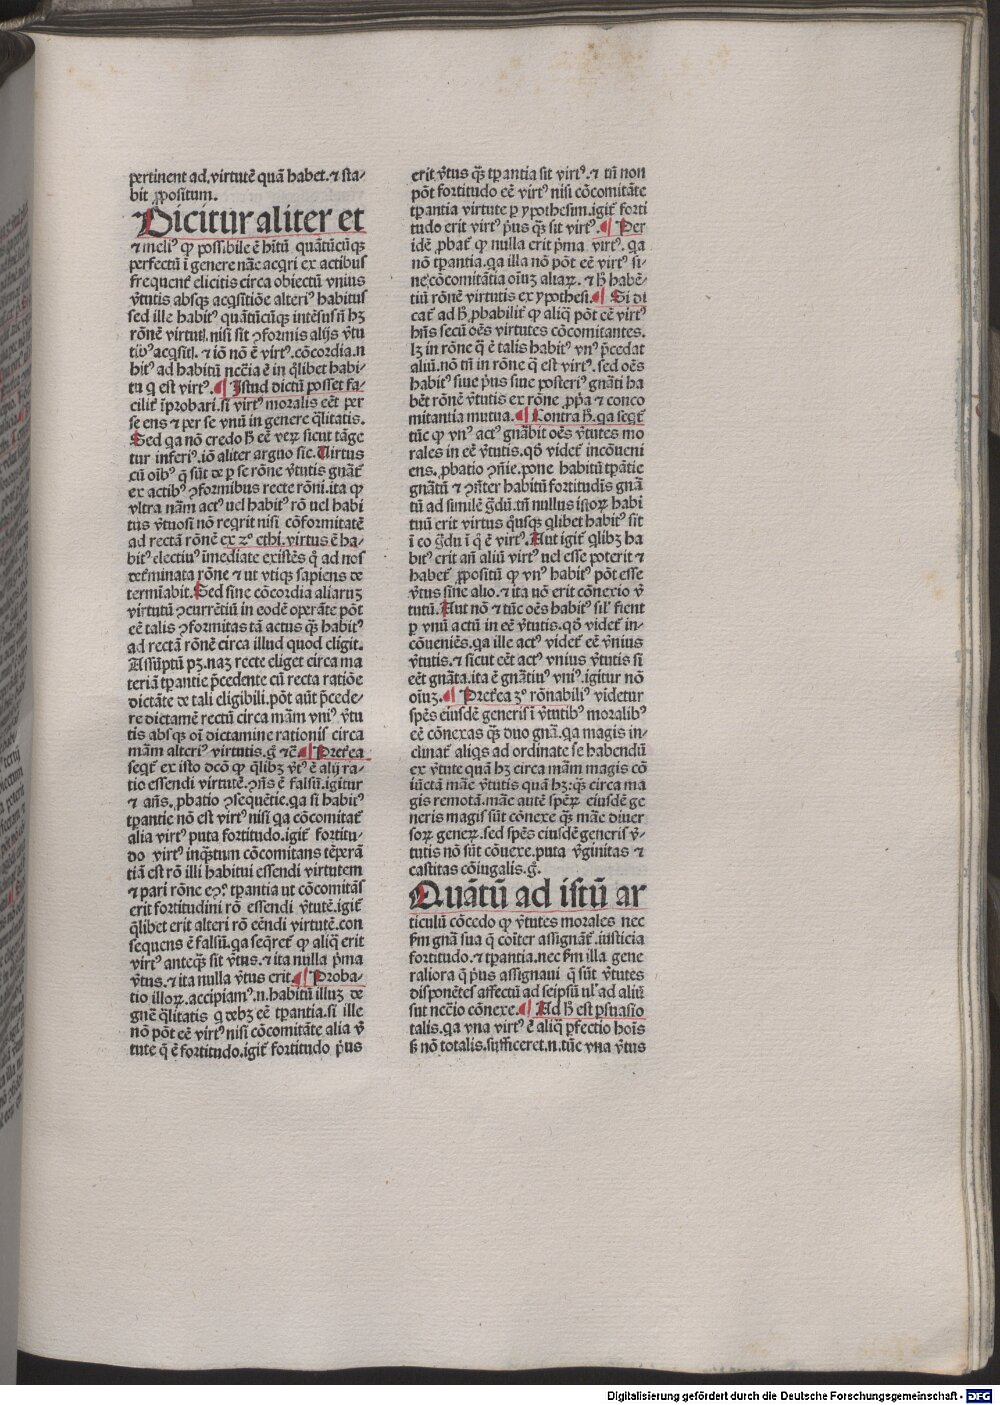 pertinent ad.virtutē quā habet.⁊ sta⸗
bit ꝓpositum.
Dicitur aliter et
⁊ meliꝰ ꝙ possibile ē hitū quātūcūqꝫ
perfectū ī genere nāe acqri ex actibus
frequent̄ elicitis circa obiectū vnius
v̄tutis absqꝫ acq̄sitiōe alteriꝰ habitus
sed ille habitꝰ quātūcūqꝫ intēsusū hꝫ
rōnē virtutꝭ. nisi sit ꝯformis alijs v̄tu
tibꝰ acq̄sitꝭ. ⁊ iō nō ē virtꝰ.cōcordia.n
bitꝰ ad habitū neccīa ē in q̄libet habi⸗
tu q est virtꝰ. ¶ Istud dictū posset fa⸗
cilit̄ īprobari.si virtꝰ moralis eēt per
se ens ⁊ per se vnū in genere q̄litatis.
Sed qa nō credo ħ eē veꝝ sicut tāge
tur inferiꝰ.iō aliter arguo sic.Virtus
cū oībꝰ q̄ sūt de ꝑ se rōne v̄tutis gnāt̄
ex actibꝰ ꝯformibus recte rōni.ita ꝙ
vltra nām actꝰ uel habitꝰ rō uel habi
tus v̄tuosi nō reqrit nisi cōformitatē
ad rectā rōnē ex 2º ethi.virtus ē ha⸗
bitꝰ electiuꝰ īmediate existēs q̄ ad nos
det̄minata rōne ⁊ ut vtiqꝫ sapiens de
termīabit.Sed sine cōcordia aliaruꝫ
virtutū ꝯcurrētiū in eodē operāte pōt
eē talis ꝯformitas tā actus qꝫ habitꝰ
ad rectā rōnē circa illud quod eligit.
Assūptū pꝫ.naꝫ recte eliget circa ma
teriā tꝑantie p̄cedente cū recta ratiōe
dictāte de tali eligibili.pōt aūt p̄cede⸗
re dictamē rectū circa mām vniꝰ v̄tu
tis absqꝫ oī dictamine rationis circa
mām alteriꝰ virtutis.ḡ ⁊cē ¶ Pret̄ea
seqt̄ ex isto dcō ꝙ q̄libꝫ v̄tꝰ ē alij ra⸗
tio essendi virtutē.ꝯn̄s ē falsū.igitur
⁊ an̄s.ꝓbatio ꝯseq̄ētie.qa si habitꝰ
tꝑantie nō est virtꝰ nisi qa cōcomitat̄
alia virtꝰ puta fortitudo.igit̄ fortitu⸗
do virtꝰ inq̄ꝫtum cōcomitans tēperā
tiā est rō illi habitui essendi virtutem
⁊ pari rōne eꝯꝰ tꝑantia ut cōcomitās
erit fortitudini rō essendi v̄tutē.igit̄
q̄libet erit alteri rō eēndi virtutē.con
sequens ē falsū.qa seq̄ret̄ ꝙ aliq̄ erit
virtꝰ anteqꝫ sit v̄tus.⁊ ita nulla p̄ma
v̄tus.⁊ ita nulla v̄tus erit.¶ Proba⸗
tio illoꝝ.accipiamꝰ.n.habitū illuꝫ de
gnē q̄litatis q debꝫ eē tꝑantia.si ille
nō pōt eē virtꝰ nisi cōcomitāte alia v̄
tute q̄ ē fortitudo.igit̄ fortitudo p̄us
erit v̄tus qꝫ tꝑantia sit virtꝰ.⁊ tn̄ non
pōt fortitudo eē virtꝰ nisi cōcomitāte
tꝑantia virtute ꝑ ypothesim.igit̄ forti
tudo erit virtꝰ p̄us qꝫ sit virtꝰ.¶ Per
idē ꝓbat̄ ꝙ nulla erit p̄ma virtꝰ. qa
nō tꝑantia.qa illa nō pōt eē virtꝰ si⸗
ne cōcomitātia oīuꝫ altaꝝ. ⁊ ħ habē⸗
tiū rōnē virtutis ex ypothesi.¶ Si di
cat̄ ad ħ ꝓbabilit̄ ꝙ aliq̄ pōt eē virtꝰ
hn̄s secū oēs virtutes cōcomitantes.
lꝫ in rōne q̄ ē talis habitꝰ vnꝰ p̄cedat
aliū.nō tn̄ in rōne q̄ est virtꝰ.sed oēs
habitꝰ siue p̄us siue posteriꝰ gnāti ha
bēt rōnē v̄tutis ex rōne ꝓpa ⁊ conco
mitantia mutua.¶ Contra ħ.qa seqt̄
tūc ꝙ vnꝰ actꝰ gnābit oēs v̄tutes mo
rales in eē v̄tutis.qō videt̄ incōueni
ens.ꝓbatio ꝯn̄ie.pone habitū tꝑātie
gnātū ⁊ ꝯn̄ter habitū fortitudīs gnā
tū ad similē ḡdū.tn̄ nullus istoꝝ habi
tuū erit virtus q̄usqꝫ q̄libet habitꝰ sit
ī eo ḡdu ī q̄ ē virtꝰ.Aut igit̄ q̄libꝫ ha
bitꝰ erit an̄ aliū virtꝰ uel esse poterit ⁊
habet̄ ꝓpositū ꝙ vnꝰ habitꝰ pōt esse
v̄tus sine alio.⁊ ita nō erit cōnexio v̄
tutū.Aut nō ⁊ tūc oēs habitꝰ silꝰ fient
ꝑ vnū actū in eē v̄tutis.qō videt̄ in⸗
cōueniēs.qa ille actꝰ videt̄ eē vnius
v̄tutis.⁊ sicut eēt actꝰ vnius v̄tutis si
eēt gnāta.ita ē gnātiuꝰ vniꝰ.igitur nō
oīuꝫ.¶ Pret̄ea 3º rōnabiliꝰ videtur
spēs eiusdē generis ī v̄tutibꝰ moralibꝰ
eē cōnexas qꝫ duo gnā.qa magis in⸗
clinat̄ aliqs ad ordinate se habendū
ex v̄tute quā hꝫ circa mām magis cō
iūctā māe v̄tutis quā hꝫ:qꝫ circa ma
gis remotā.māe autē spēꝝ eiusdē ge
neris magis sūt cōnexe qꝫ māe diuer
soꝝ geneꝝ.sed spēs eiusdē generis v̄⸗
tutis nō sūt cōnexe.puta v̄ginitas ⁊
castitas cōiugalis.ḡ.
Quātū ad istū ar
ticulū cōcedo ꝙ v̄tutes morales nec
ẜm gnā sua q̄ cōiter assignāt̄.iusticia
fortitudo.⁊ tꝑantia.nec ẜm illa gene
raliora q̄ p̄us assignaui q̄ sūt v̄tutes
disponētes affectū ad seipsū ul̓ ad aliū
sut neccīo cōnexe.¶ Ad ħ est ꝑsuasio
talis.qa vna virtꝰ ē aliq̄ ꝑfectio hoīs
ꝭ nō totalis.sufficeret.n.tūc vna v̄tus
Digitalisierung gefördert durch die Deutsche Forschungsgemeinschaft - DFG